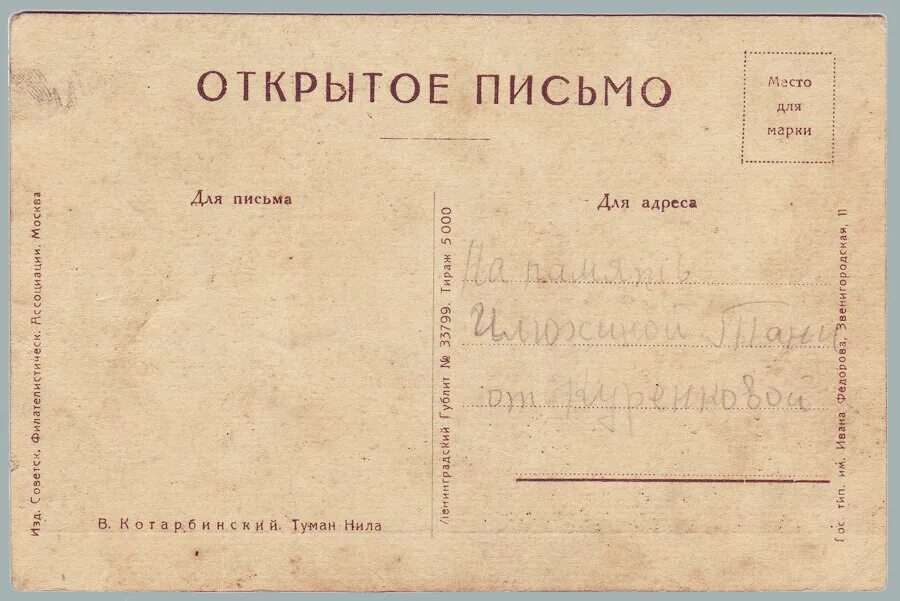 ОТКРЫТОЕ ПИСЬМО
Место
для
марки
Для письма
Для адреса
На память
Илюхиной Тани
от Куренковой
В. Котарбинский. Туман Нила
Изд. Советск. Филателистическ. Ассоциации. Москва
Ленинградский Гублит № 33799. Тираж 5000
Гос. тип. им. Ивана Федорова, Звенигородская, 11